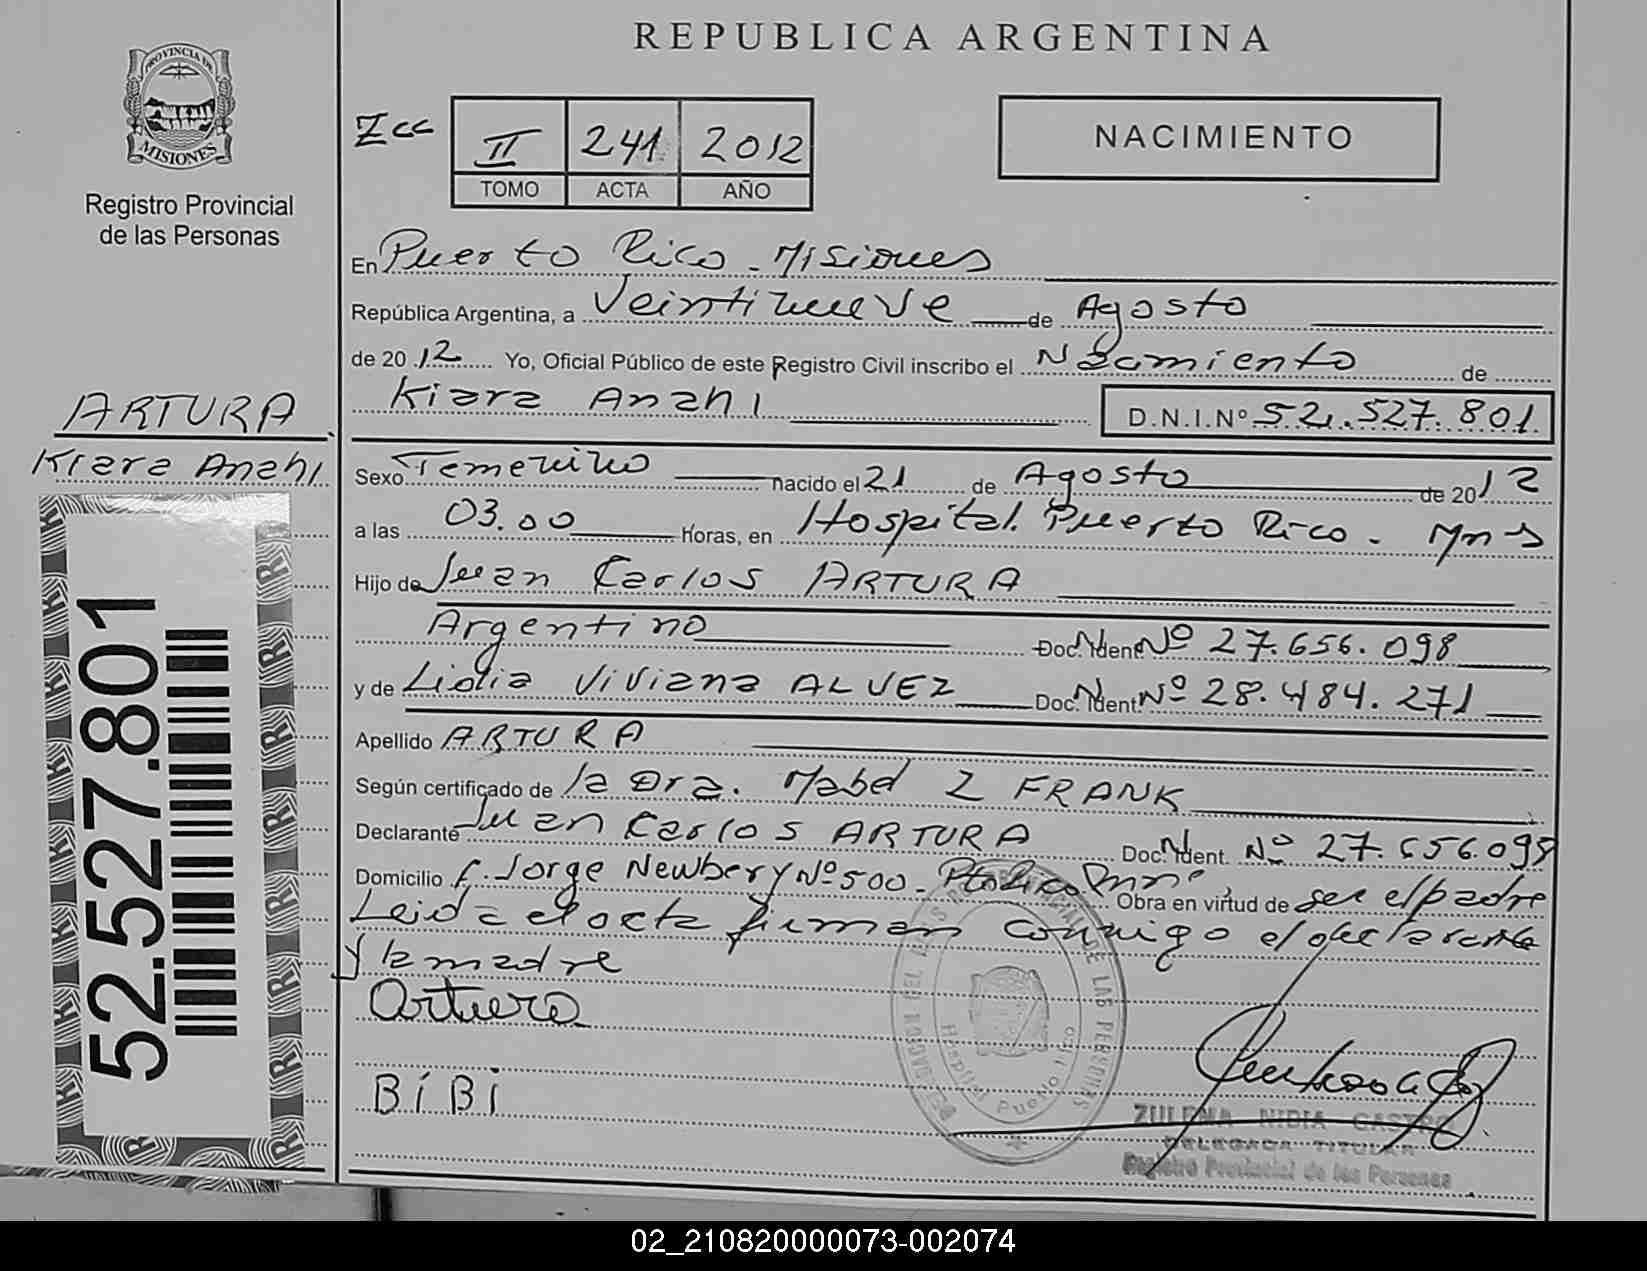 REPUBLICA ARGENTINA
PROVINCIA DE
MISIONES
Registro Provincial
de las Personas
II 241 2012
TOMO ACTA AÑO
NACIMIENTO
En Puerto Rico - Misiones
República Argentina, a Veintinueve de Agosto
de 2012 Yo, Oficial Público de este Registro Civil inscribo el Nacimiento de
Kiara Anahi D.N.I.Nº 52.527.801
ARTURA
Kiara Anahi
52.527.801
Sexo Femenino nacido el 21 de Agosto de 2012
a las 03.00 Horas, en Hospital Puerto Rico - Mnes
Hijo de Juan Carlos ARTURA
Argentino Doc. Ident. Nº 27.656.098
y de Lidia Viviana ALVEZ Doc. Ident. Nº 28.484.271
Apellido ARTURA
Según certificado de la Dra. Mabel Z FRANK
Declarante Juan Carlos ARTURA Doc. Ident. Nº 27.656.098
Domicilio Jorge Newbery Nº 500 - Pto Rico Obra en virtud de ser el padre
Leida el acta firman conmigo el declarante
y la madre
Artura
BiBi
Hospital Puerto Rico
ZULEMA NIDIA CASTRO
DELEGADA TITULAR
Registro Provincial de las Personas
02_210820000073-002074